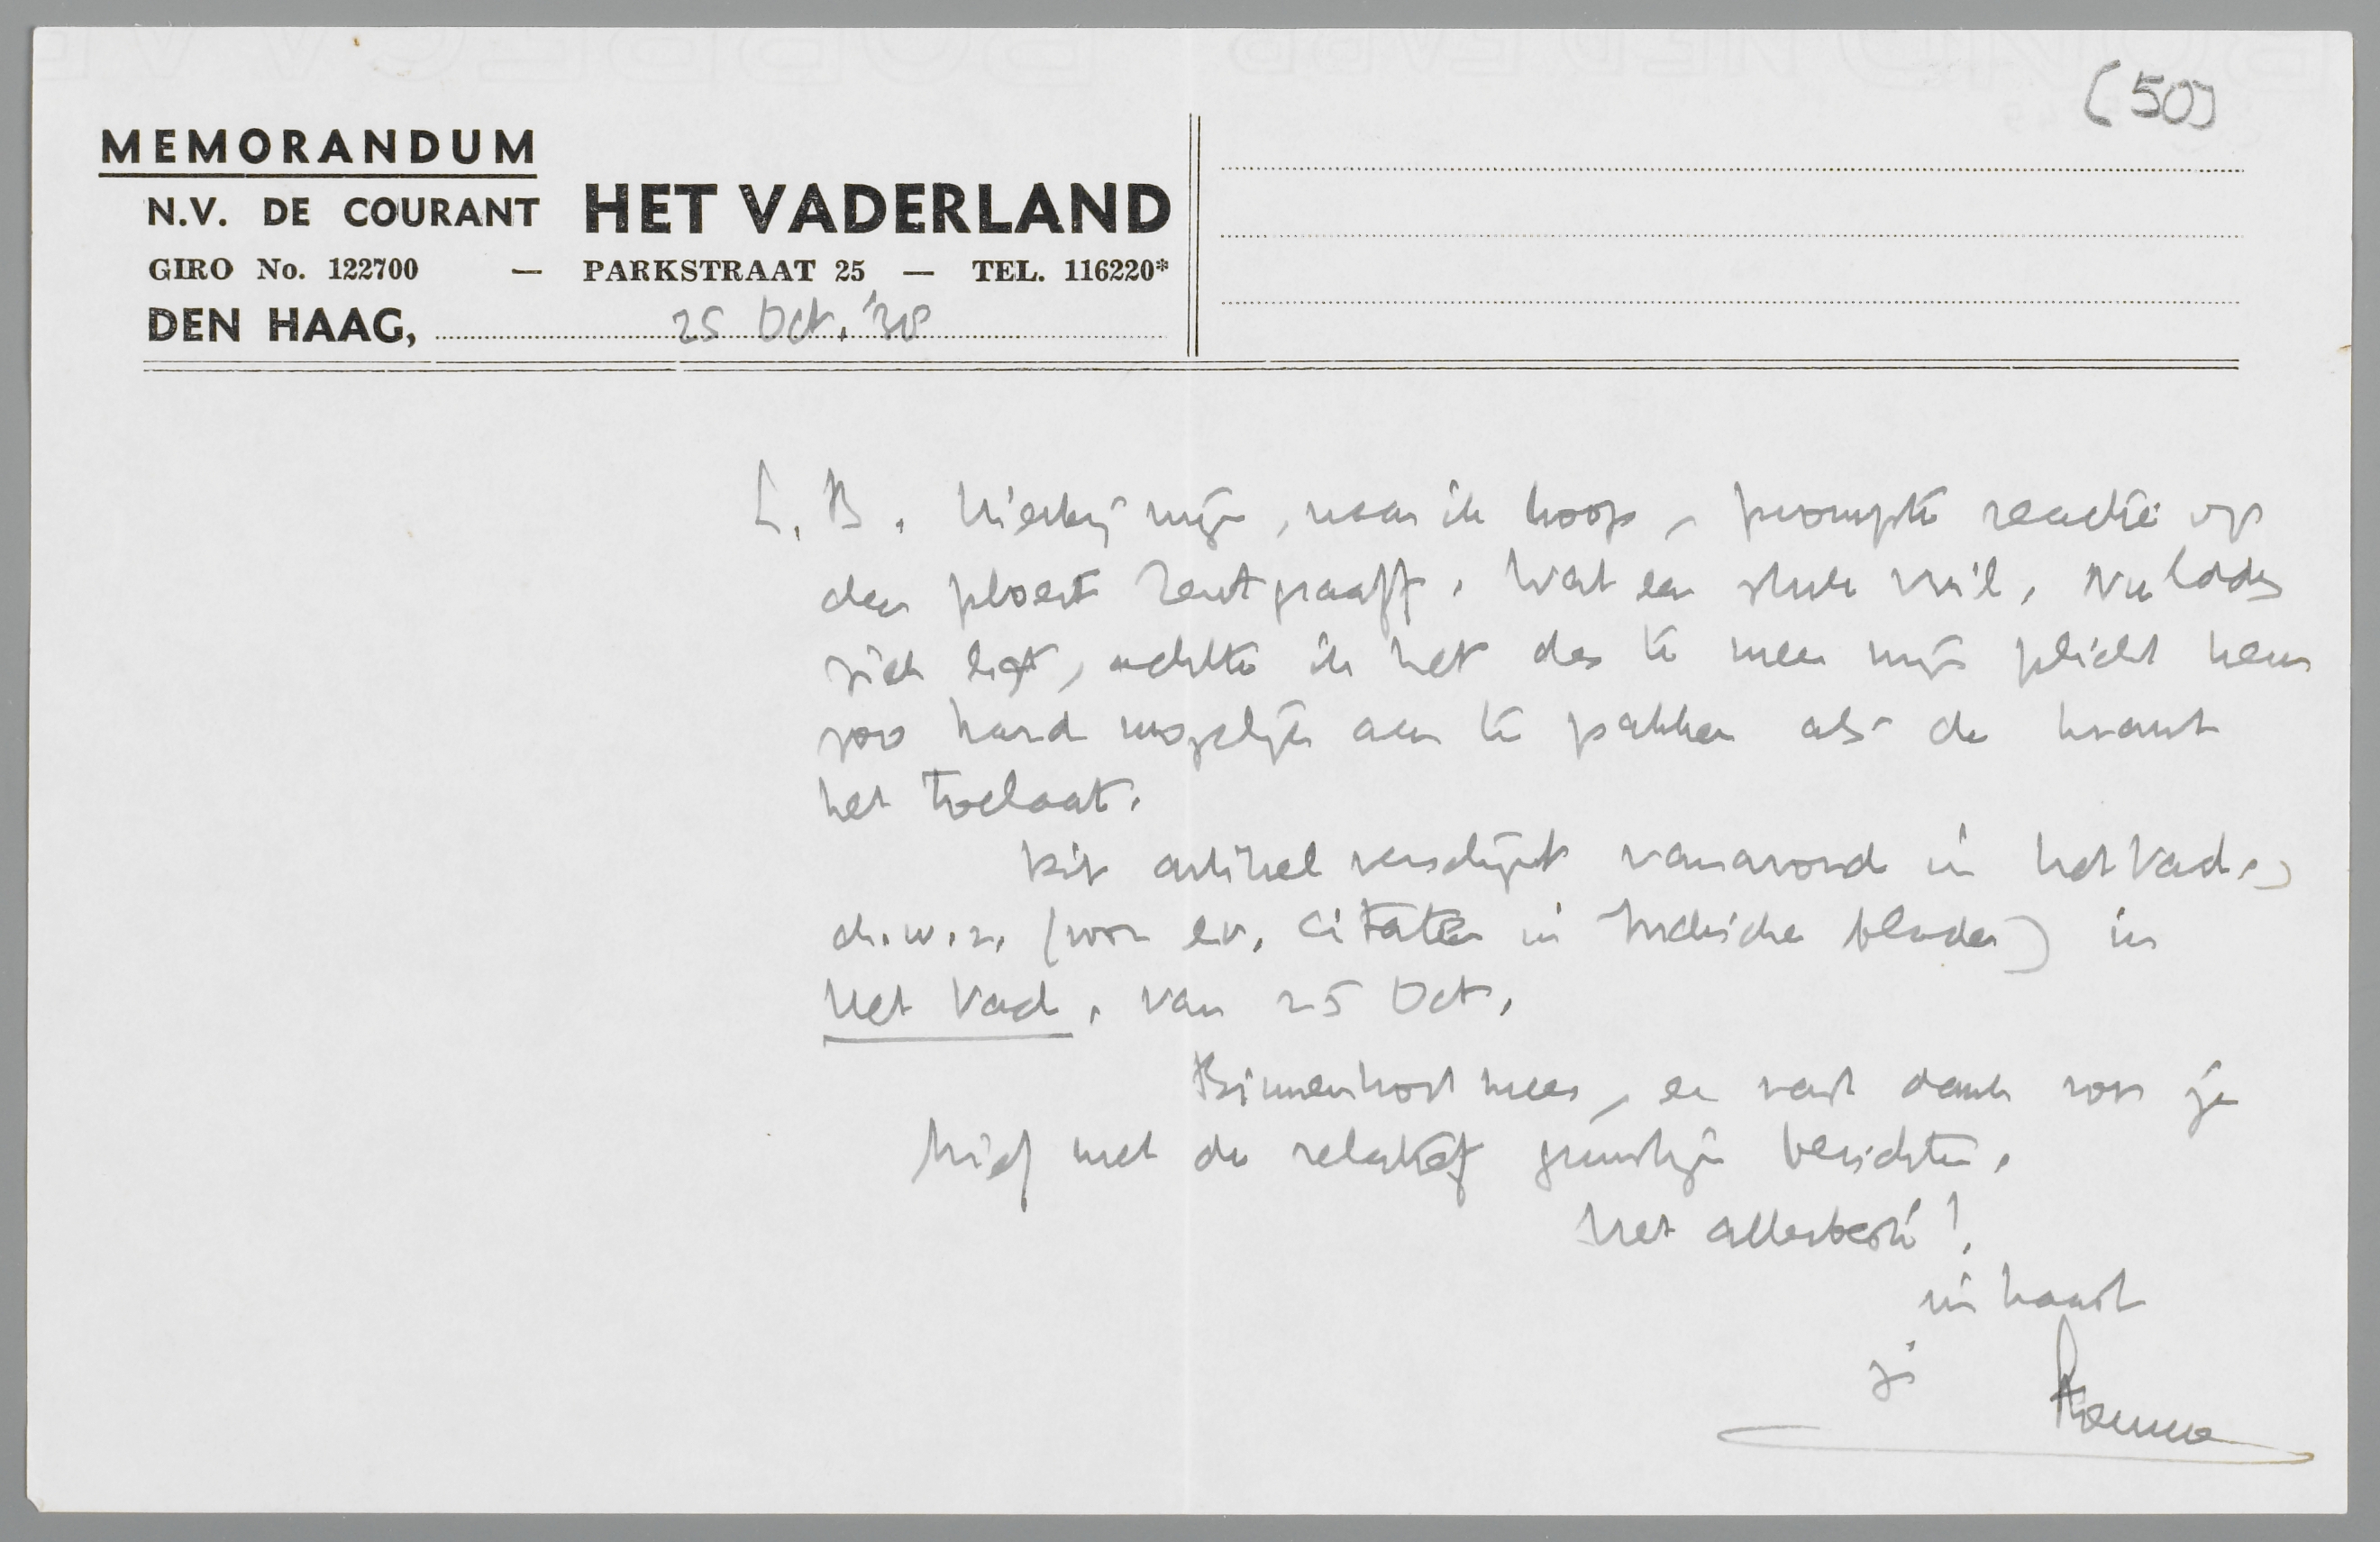 (50)
MEMORANDUM
N.V. DE COURANT HET VADERLAND
GIRO No. 122700 — PARKSTRAAT 25 — TEL. 116220*
DEN HAAG, 25 Oct. '38
L. B. Hierbij mijn, naar ik hoop, prompte reactie op
den ploert Zentgraaff. Wat een stuk vuil. Nu
zich ligt, achtte ik het des te meer mijn plicht hem
zoo hard mogelijk aan te pakken als de krant
het toelaat.
Dit artikel verschijnt vanavond in het Vad.,
d.w.z. (voor ev. citaten in Indische bladen) in
Het Vad. van 25 Oct.
Binnenkort meer, en vast dank voor je
brief met de relatief gunstige berichten.
Het allerbeste!
in haast
je Menno